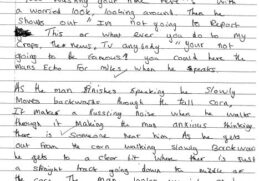 wasting your time here's with
a worried look, looking around then he
shouts out "I'm not going to Report
This or what ever you do to my
Crops, the news, TV any body "your not
going to be famous? you could here the
mans Echo for miles, when he speaks.
As the man finishes speaking he slowly
moves backwards through the tall corn,
It makes a russcing noise when he walks
through it Making the man anxious thinking
there is someone near him As he gets
out from the corn walking slowly Backwards
he gets to a clear bit where ther is just
a straight tract going down to middle of
the corn The man looks